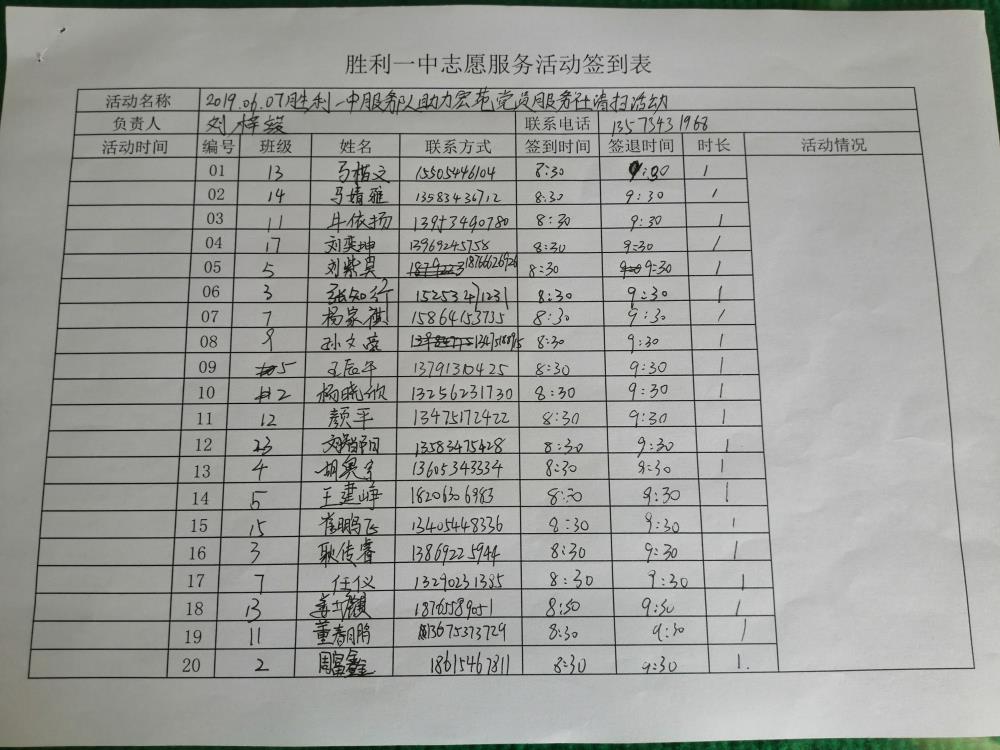 胜利一中志愿服务活动签到表
活动名称 2019.06.07胜利一中服务队助力宏苑党员服务社清扫活动
负责人 刘梓竣 联系电话 13573431968
活动时间 编号 班级 姓名 联系方式 签到时间 签退时间 时长 活动情况
01 13 马楷文 15505446104 8:30 9:30 1
02 14 马婧雅 13583436712 8:30 9:30 1
03 11 牛依扬 13953490780 8:30 9:30 1
04 17 刘奕坤 13969245758 8:30 9:30 1
05 5 刘紫昊 18766626926 8:30 9:30 1
06 3 张知行 15253471231 8:30 9:30 1
07 7 杨家祺 15864153735 8:30 9:30 1
08 9 孙文 8:30 9:30 1
09 5 王辰午 13791310425 8:30 9:30 1
10 2 杨晓欣 13256231730 8:30 9:30 1
11 12 颜平 13475172422 8:30 9:30 1
12 23 刘 13583475428 8:30 9:30 1
13 4 胡 13605343334 8:30 9:30 1
14 5 王建峥 18206306983 8:30 9:30 1
15 15 崔鹏飞 13405448336 8:30 9:30 1
16 3 耿传睿 13869225944 8:30 9:30 1
17 7 任仪 13290231385 8:30 9:30 1
18 13 姜 18765589051 8:30 9:30 1
19 11 董 13675373729 8:30 9:30 1
20 2 周富鑫 18615467811 8:30 9:30 1